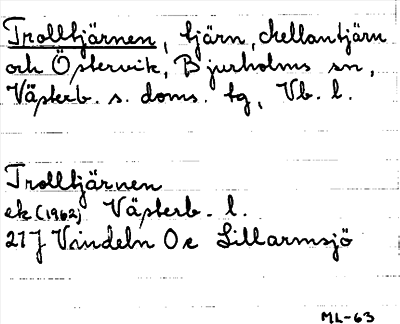 Trolltjärnen, tjärn, Mellantjärn
och Östervik, Bjurholms sn,
Västerb. s. doms. tg, Vb. l.
Trolltjärnen
ek (1962) Västerb. l.
21J Vindeln Oe Lillarmsjö
ML-63